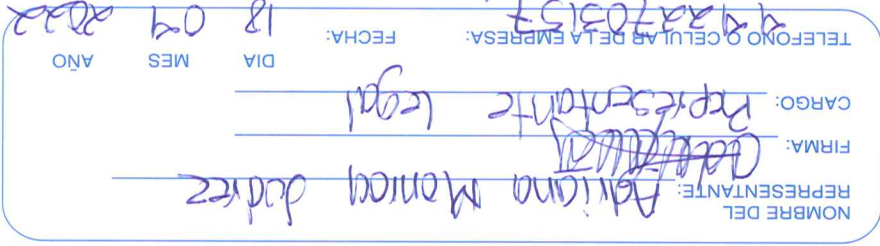 NOMBRE DEL
REPRESENTANTE: Adriana Monica Juarez
FIRMA:
CARGO: Representante Legal
DIA MES AÑO
TELEFONO O CELULAR DE LA EMPRESA: 4422703157 FECHA: 18 04 2022